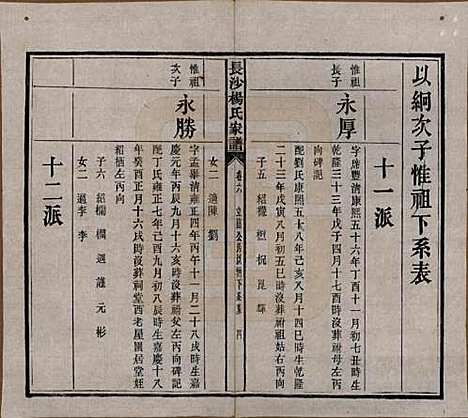 以絅次子惟祖下系表
十一派
惟祖長子
永厚
字席豐清康熙五十六年丁酉十一月初七丑時生
乾隆三十三年戊子四月十七酉時沒葬祔祖母左丙
向碑記
配劉氏康熙五十八年己亥八月十四巳時生乾隆
二十三年戊寅八月初五巳時沒葬祔祖左丙向
子五 紹
女二 適陳 劉
長沙楊氏家譜
卷六
惟祖次子
永勝
字孟舉清雍正四年丙午十一月二十八戌時生嘉
慶元年丙辰九月十六亥時沒葬祔父左丙向碑記
配丁氏雍正七年己酉九月初八辰時生嘉慶十八
年癸酉正月十六戌時沒葬祠堂西老屋園居堂姪
紹栖左丙向
子六 紹 欄 選 謹 元 彬
女二 適李 李
十二派